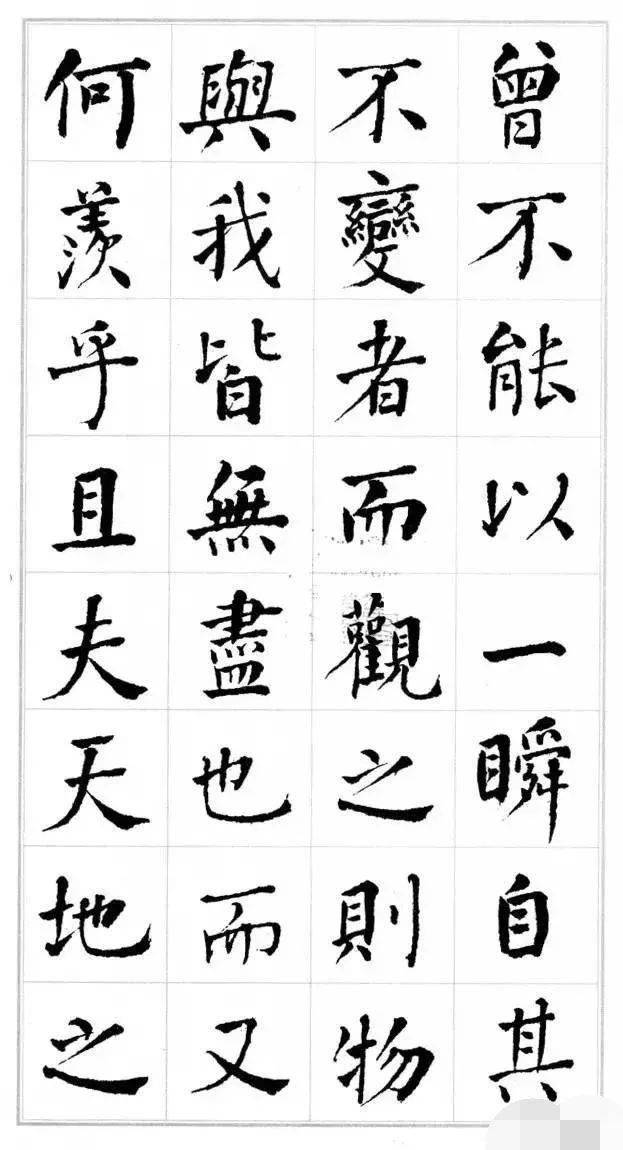 曾不能以一瞬自其
不變者而觀之則物
與我皆無盡也而又
何羨乎且夫天地之